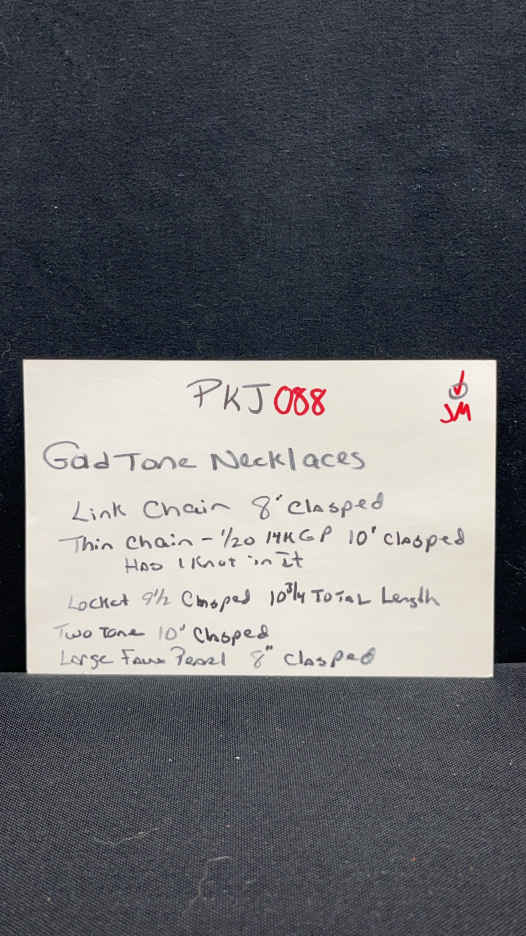 PKJ 088
JM
Gold Tone Necklaces
Link Chain 8" Clasped
Thin Chain - 1/20 14KGP 10" Clasped
Has 1 Knot in it
Locket 9 1/2 Clasped 10 3/4 Total Length
Two Tone 10" Clasped
Large Faux Pearl 8" Clasped